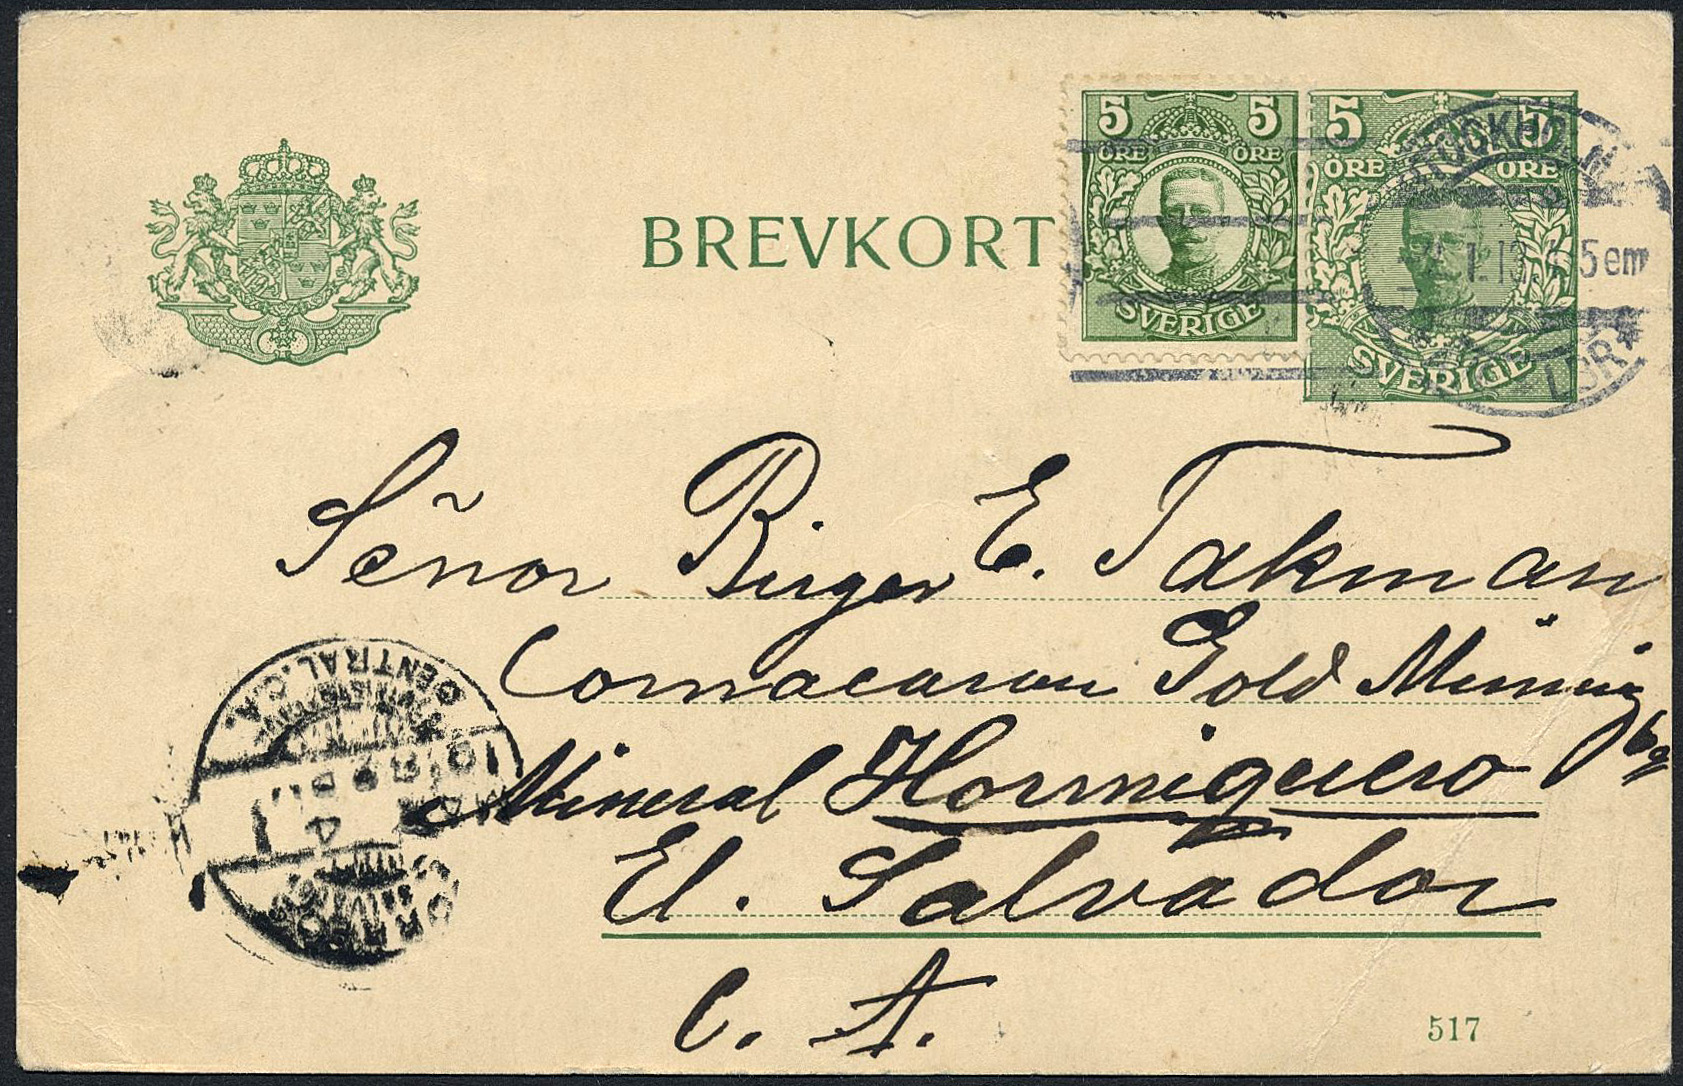 BREVKORT
5 5
ÖRE ÖRE
SVERIGE
5 5
ÖRE ÖRE
SVERIGE
STOCKHOLM
5 em
LBR
Señor Birger E. Takman
Comacaran Gold Mining
Mineral Hormiguero
El. Salvador
C. A.
CENTRAL. C.A.
CORREOS
517